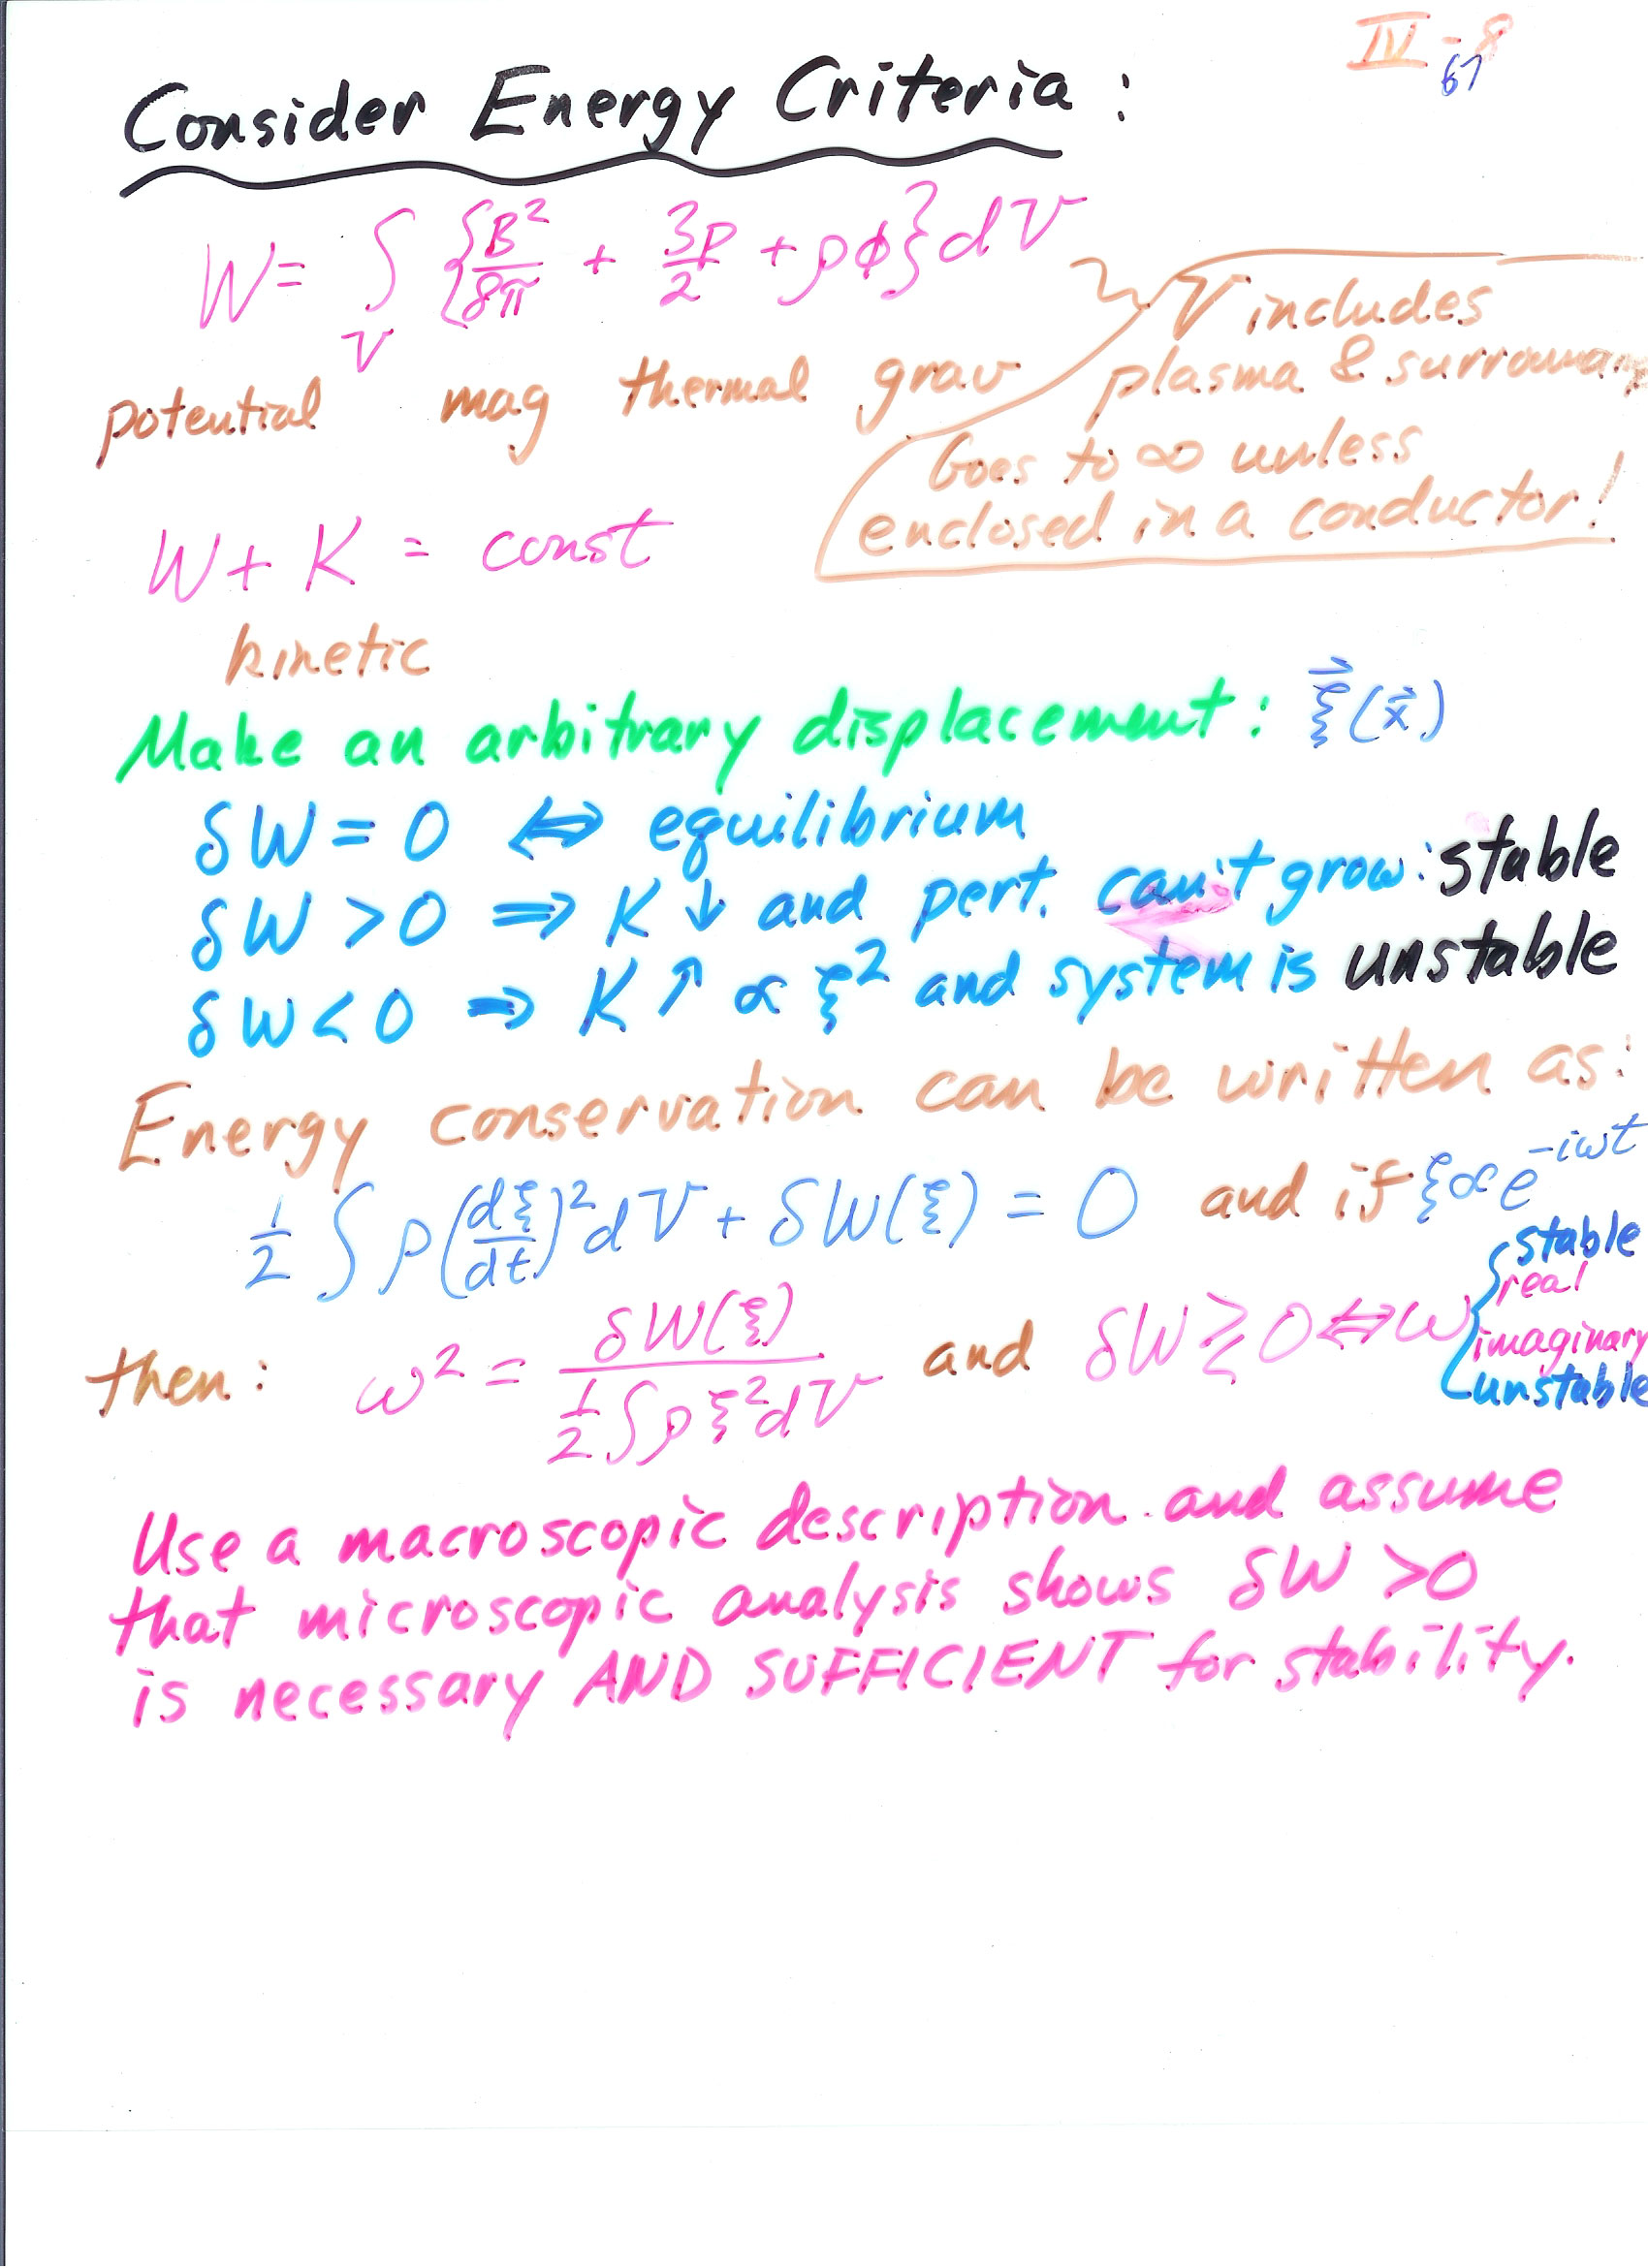 IV-8
67
Consider Energy Criteria:
W = ∫_V {B²/8π + 3p/2 + ρϕ} dV
V includes
potential mag thermal grav
plasma & surroun
Goes to ∞ unless
enclosed in a conductor!
W + K = const
kinetic
Make an arbitrary displacement: ξ⃗(x⃗)
δW = 0 ⇔ equilibrium
δW > 0 ⇒ K ↓ and pert. can't grow: stable
δW < 0 ⇒ K ↑ ∝ ξ² and system is unstable
Energy conservation can be written as:
1/2 ∫ ρ(dξ/dt)² dV + δW(ξ) = 0 and if ξ ∝ e^{-iωt}
then: ω² = δW(ξ) / (1/2 ∫ρ ξ² dV) and δW ≷ 0 ⇔ ω { stable real imaginary unstable
Use a macroscopic description and assume
that microscopic analysis shows δW > 0
is necessary AND SUFFICIENT for stability.